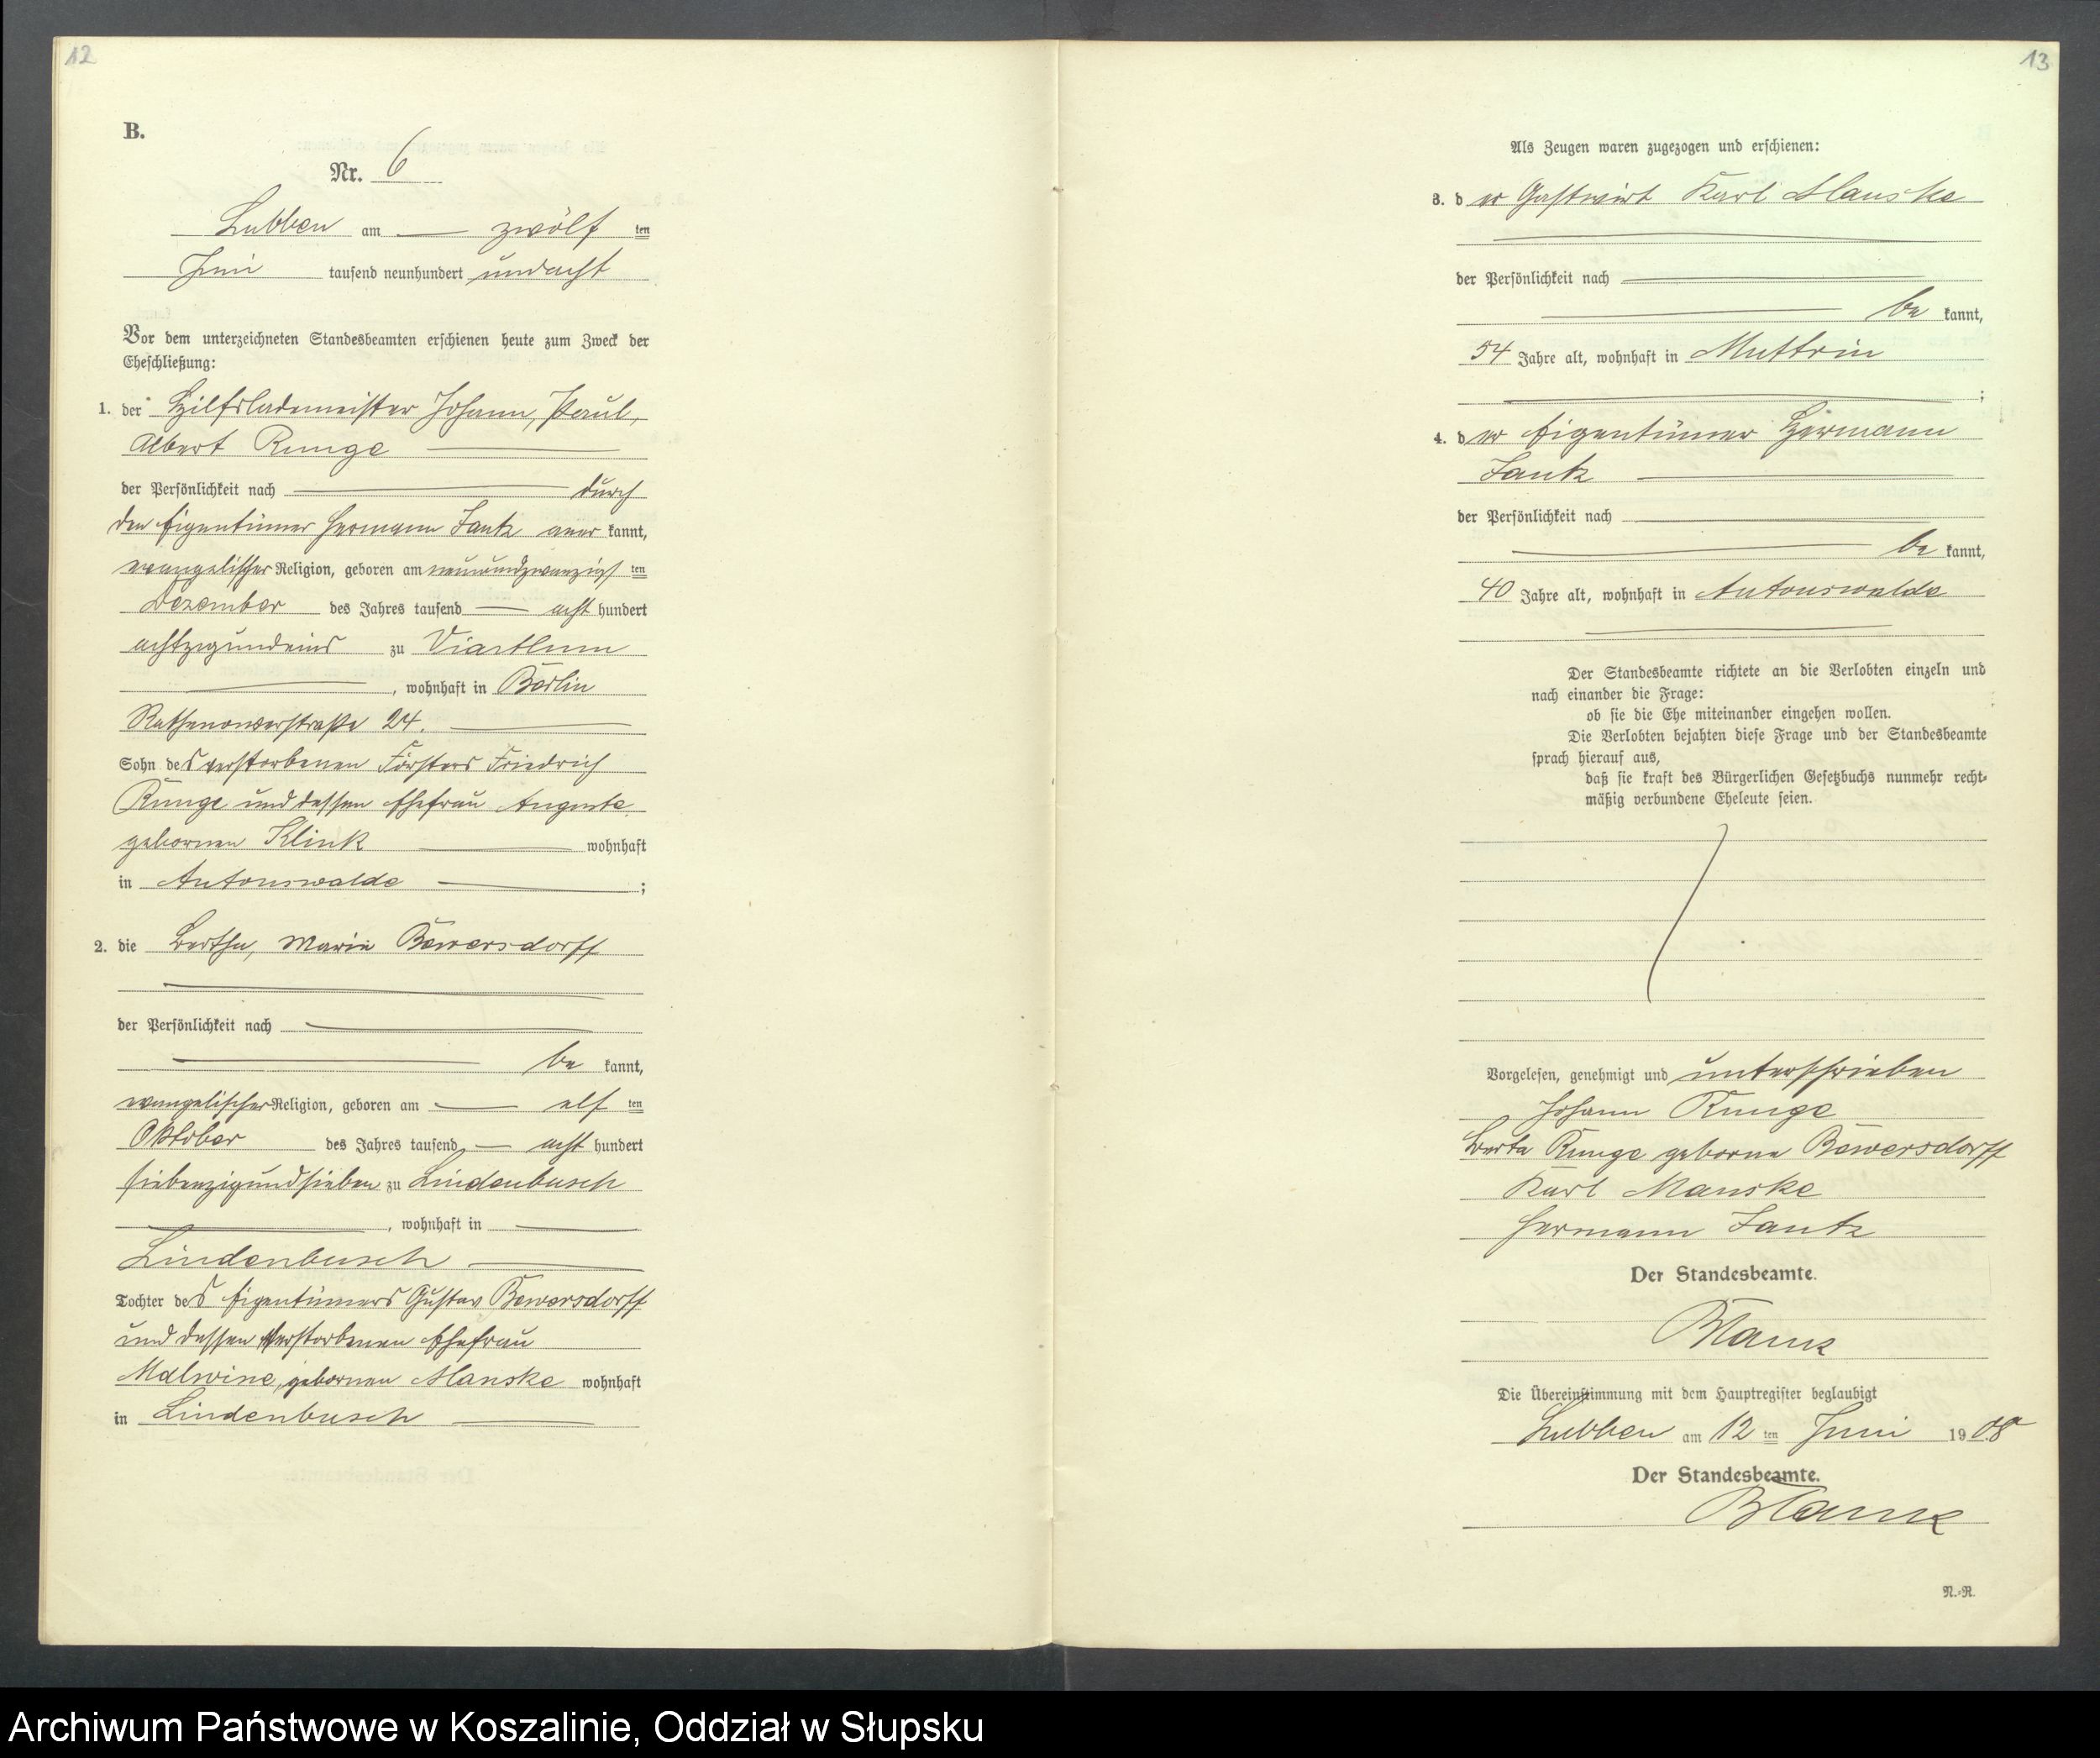 12
B.
Nr. 6
Lubben am — zwölf ten
Juni tausend neunhundert undacht
Vor dem unterzeichneten Standesbeamten erschienen heute zum Zweck der
Eheschließung:
1. der Hilfslademeister Johann, Paul,
Albert Runge
der Persönlichkeit nach — durch
den Eigentümer Hermann Jantz aner kannt,
evangelischer Religion, geboren am neunundzwanzigs ten
Dezember des Jahres tausend — acht hundert
achtzigundeins zu Viartlum
, wohnhaft in Berlin
Rathenowerstraße 24.
Sohn des verstorbenen Försters Friedrich
Runge und dessen Ehefrau Auguste
gebornen Klink wohnhaft
in Antonswalde ;
2. die Bertha, Marie Bewersdorff
der Persönlichkeit nach
be kannt,
evangelischer Religion, geboren am — elf ten
Oktober des Jahres tausend — acht hundert
siebenzigundsieben zu Lindenbusch
, wohnhaft in
Lindenbusch
Tochter des Eigentümers Gustav Bewersdorff
und dessen verstorbenen Ehefrau
Malwine, gebornen Manske wohnhaft
in Lindenbusch
13
Als Zeugen waren zugezogen und erschienen:
3. d er Gastwirt Karl Manske
der Persönlichkeit nach
be kannt,
54 Jahre alt, wohnhaft in Muttrin
;
4. d er Eigentümer Hermann
Jantz
der Persönlichkeit nach
be kannt,
40 Jahre alt, wohnhaft in Antonswalde
Der Standesbeamte richtete an die Verlobten einzeln und
nach einander die Frage:
ob sie die Ehe miteinander eingehen wollen.
Die Verlobten bejahten diese Frage und der Standesbeamte
sprach hierauf aus,
daß sie kraft des Bürgerlichen Gesetzbuchs nunmehr recht-
mäßig verbundene Eheleute seien.
Vorgelesen, genehmigt und unterschrieben
Johann Runge
Berta Runge geborne Bewersdorff
Karl Manske
Hermann Jantz
Der Standesbeamte.
Blanck
Die Übereinstimmung mit dem Hauptregister beglaubigt
Lubben am 12 ten Juni 19 08
Der Standesbeamte.
Blanck
N.-R.
Archiwum Państwowe w Koszalinie, Oddział w Słupsku